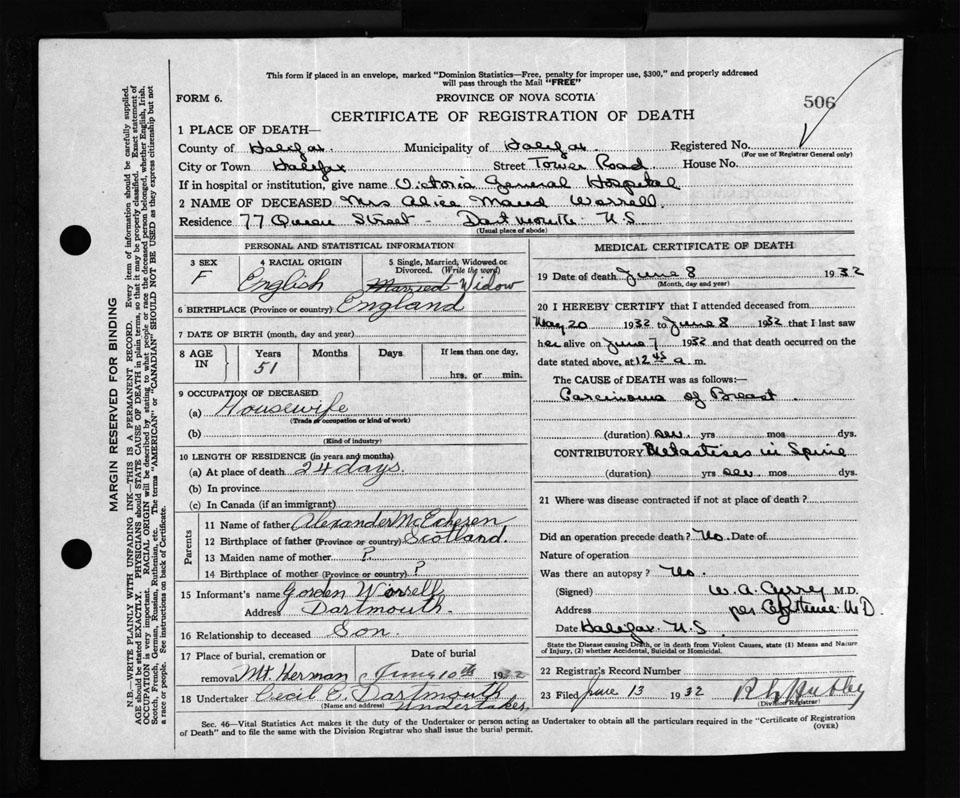 This form if placed in an envelope, marked "Dominion Statistics—Free, penalty for improper use, $300," and properly addressed
will pass through the Mail "FREE"
FORM 6.
PROVINCE OF NOVA SCOTIA
506
CERTIFICATE OF REGISTRATION OF DEATH
1 PLACE OF DEATH—
County of Halifax Municipality of Halifax Registered No.
(For use of Registrar General only)
City or Town Halifax Street Tower Road House No.
If in hospital or institution, give name Victoria General Hospital
2 NAME OF DECEASED Mrs Alice Maud Worrell.
Residence 77 Queen Street - Dartmouth N.S
(Usual place of abode)
PERSONAL AND STATISTICAL INFORMATION
3 SEX
F
4 RACIAL ORIGIN
English
5 Single, Married, Widowed or
Divorced. (Write the word)
Married Widow
6 BIRTHPLACE (Province or country) England
7 DATE OF BIRTH (month, day and year)
8 AGE
IN
Years
51
Months
Days
If less than one day,
hrs. or min.
9 OCCUPATION OF DECEASED
(a) Housewife
(Trade or occupation or kind of work)
(b)
(Kind of industry)
10 LENGTH OF RESIDENCE (in years and months)
(a) At place of death 24 days.
(b) In province
(c) In Canada (if an immigrant)
Parents
11 Name of father Alexander
12 Birthplace of father (Province or country) Scotland.
13 Maiden name of mother ?
14 Birthplace of mother (Province or country) ?
15 Informant's name Gorden Worrell
Address Dartmouth.
16 Relationship to deceased Son.
17 Place of burial, cremation or
removal Mt. Herman
Date of burial
June 10th 1932
18 Undertaker Cecil E. Dartmouth
(Name and address) Undertaker,
MEDICAL CERTIFICATE OF DEATH
19 Date of death June 8 1932
(Month, day and year)
20 I HEREBY CERTIFY that I attended deceased from
May 20 1932 to June 8 1932 that I last saw
her alive on June 7 1932 and that death occurred on the
date stated above, at 12 45 a m.
The CAUSE OF DEATH was as follows:—
Carcinoma of Breast.
(duration) sev yrs mos dys.
CONTRIBUTORY Metastises in Spine
(duration) yrs sev mos dys.
21 Where was disease contracted if not at place of death?
Did an operation precede death? No. Date of
Nature of operation
Was there an autopsy? No.
(Signed) W. A. Curry M.D.
Address per M D.
Date Halifax. N.S.
State the Disease causing Death, or in Death from Violent Causes, state (1) Means and Nature
of Injury, (2) whether Accidental, Suicidal or Homicidal.
22 Registrar's Record Number
23 Filed June 13 1932
(Division Registrar)
Sec. 46—Vital Statistics Act makes it the duty of the Undertaker or person acting as Undertaker to obtain all the particulars required in the "Certificate of Registration
of Death" and to file the same with the Division Registrar who shall issue the burial permit.
(OVER)
MARGIN RESERVED FOR BINDING
N.B.—WRITE PLAINLY WITH UNFADING INK—THIS IS A PERMANENT RECORD. Every item of information should be carefully supplied.
AGE should be stated EXACTLY. PHYSICIANS should STATE CAUSE OF DEATH in plain terms, so that it may be properly classified. Exact statement of
OCCUPATION is very important. RACIAL ORIGIN will be described by stating to what people or race the deceased person belonged, whether English, Irish,
Scotch, French, German, Russian, Ruthenian, etc. The terms "AMERICAN" or "CANADIAN" SHOULD NOT BE USED as they express citizenship but not
a race or people. See instructions on back of Certificate.